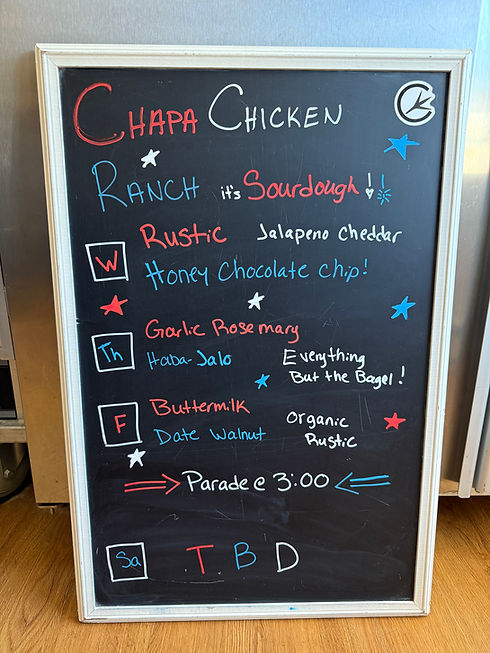 CHAPA CHICKEN
RANCH it's Sourdough!!
W Rustic Jalapeno Cheddar
Honey Chocolate Chip!
Th Garlic Rosemary
Haba-Jalo Everything
But the Bagel!
F Buttermilk
Date Walnut Organic
Rustic
Parade @ 3:00
Sa T B D